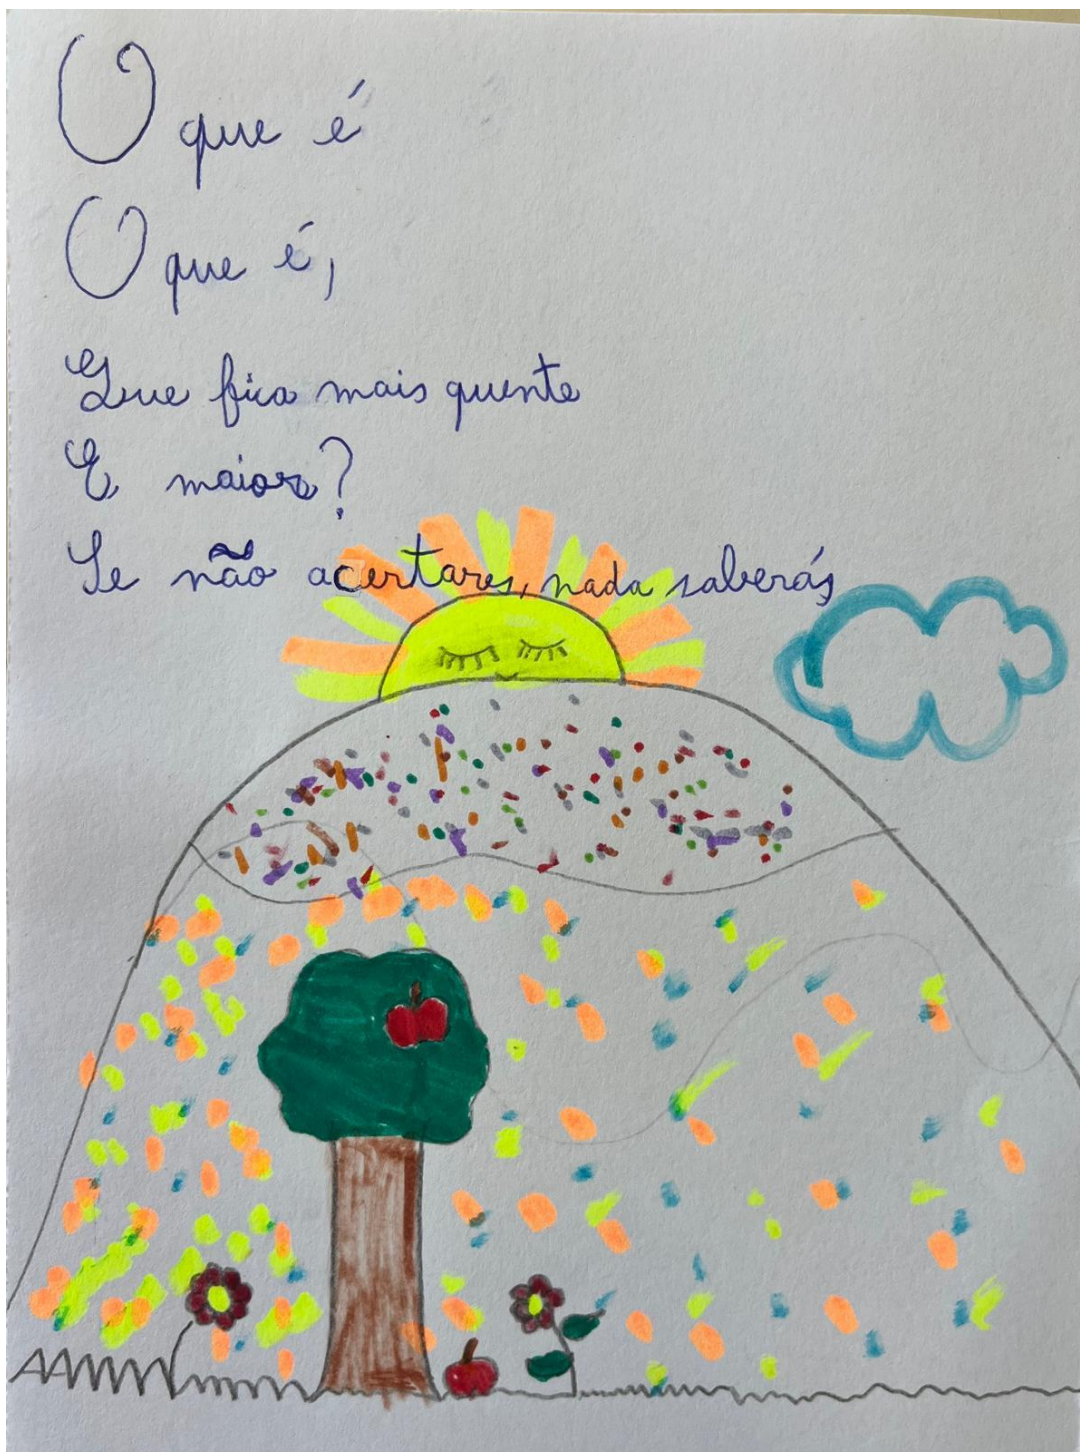 O que é
O que é,
Que fica mais quente
E maior?
Se não acertares, nada saberás